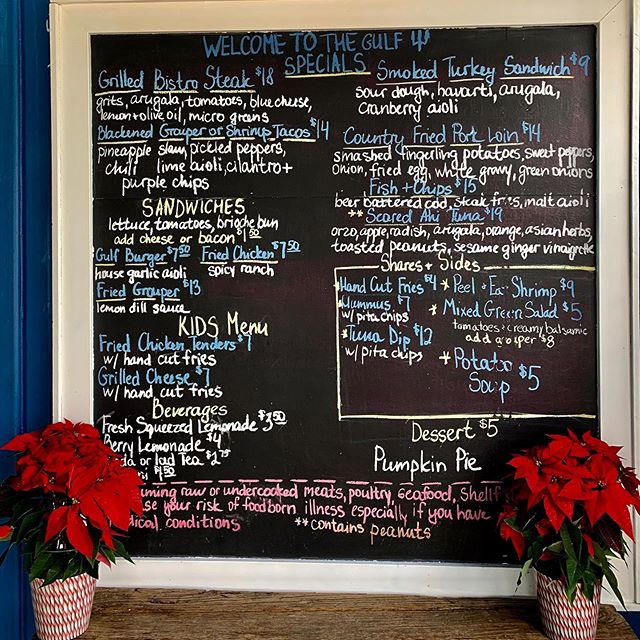 WELCOME TO THE GULF 4
SPECIALS
Grilled Bistro Steak $18
grits, arugala, tomatoes, blue cheese,
lemon + olive oil, micro greens
Blackened Grouper or Shrimp Tacos $14
pineapple slaw, pickled peppers,
chili lime aioli, cilantro +
purple chips
SANDWICHES
lettuce, tomatoes, brioche bun
add cheese or bacon $1.50
Gulf Burger $7.50 Fried Chicken $7.50
house garlic aioli spicy ranch
Fried Grouper $13
lemon dill sauce
KIDS Menu
Fried Chicken Tenders $7
w/ hand cut fries
Grilled Cheese $7
w/ hand cut fries
Beverages
Fresh Squeezed Lemonade $3.50
Berry Lemonade $4
Tea $2.75
$1.50
Smoked Turkey Sandwich $9
sour dough, havarti, arugala,
cranberry aioli
Country Fried Pork Loin $14
smashed fingerling potatoes, sweet peppers,
onion, fried egg, white gravy, green onions
Fish + Chips $15
beer battered cod, steak fries, malt aioli
** Seared Ahi Tuna $19
orzo, apple, radish, arugala, orange, asian herbs,
toasted peanuts, sesame ginger vinaigrette
Shares + Sides
*Hand Cut Fries $4
*Hummus $7
w/ pita chips
*Tuna Dip $12
w/ pita chips
* Peel + Eat Shrimp $9
* Mixed Green Salad $5
tomatoes + creamy balsamic
add grouper $8
* Potato
Soup $5
Dessert $5
Pumpkin Pie
raw or undercooked meats, poultry, seafood,
your risk of foodborn illness especially if you have
conditions **contains peanuts